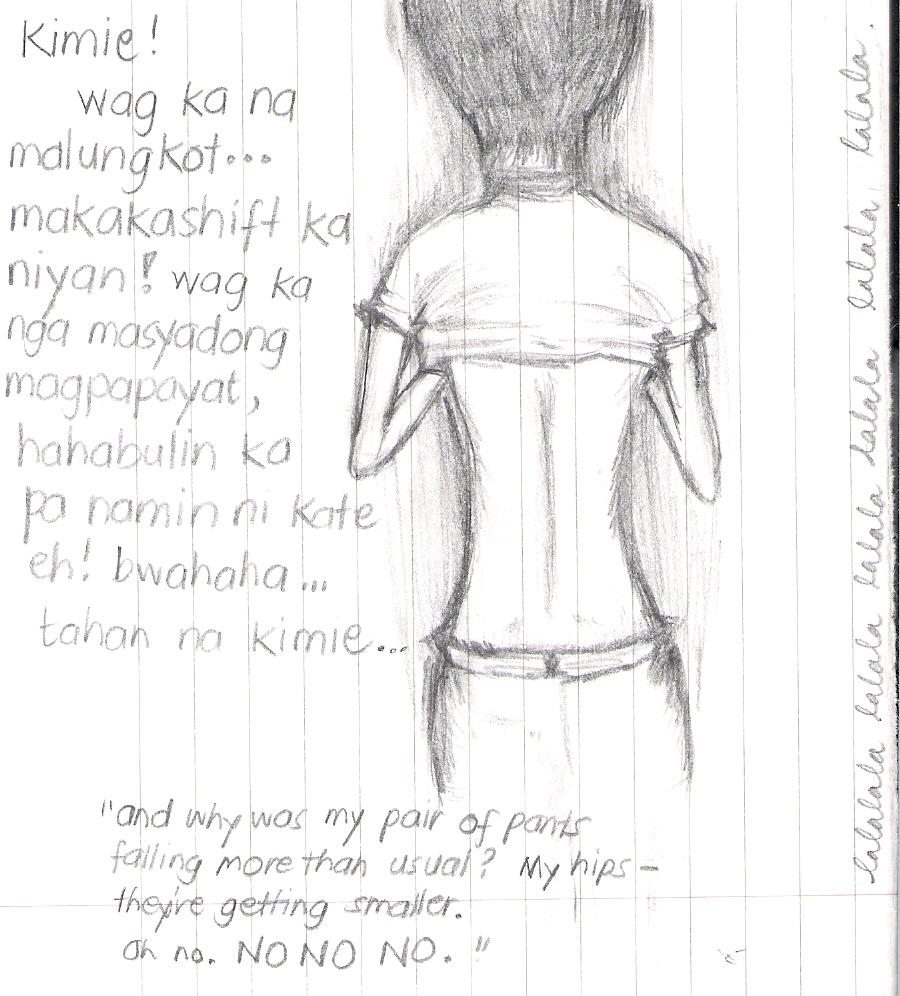 Kimie!
wag ka na
malungkot...
makakashift ka
niyan! wag ka
nga masyadong
magpapayat,
hahabulin ka
pa namin ni Kate
eh! bwahaha...
tahan na kimie...
"and why was my pair of pants
falling more than usual? My hips -
they're getting smaller.
Oh no. NO NO NO."
lalala lalala lalala lalala lalala lalala lalala.